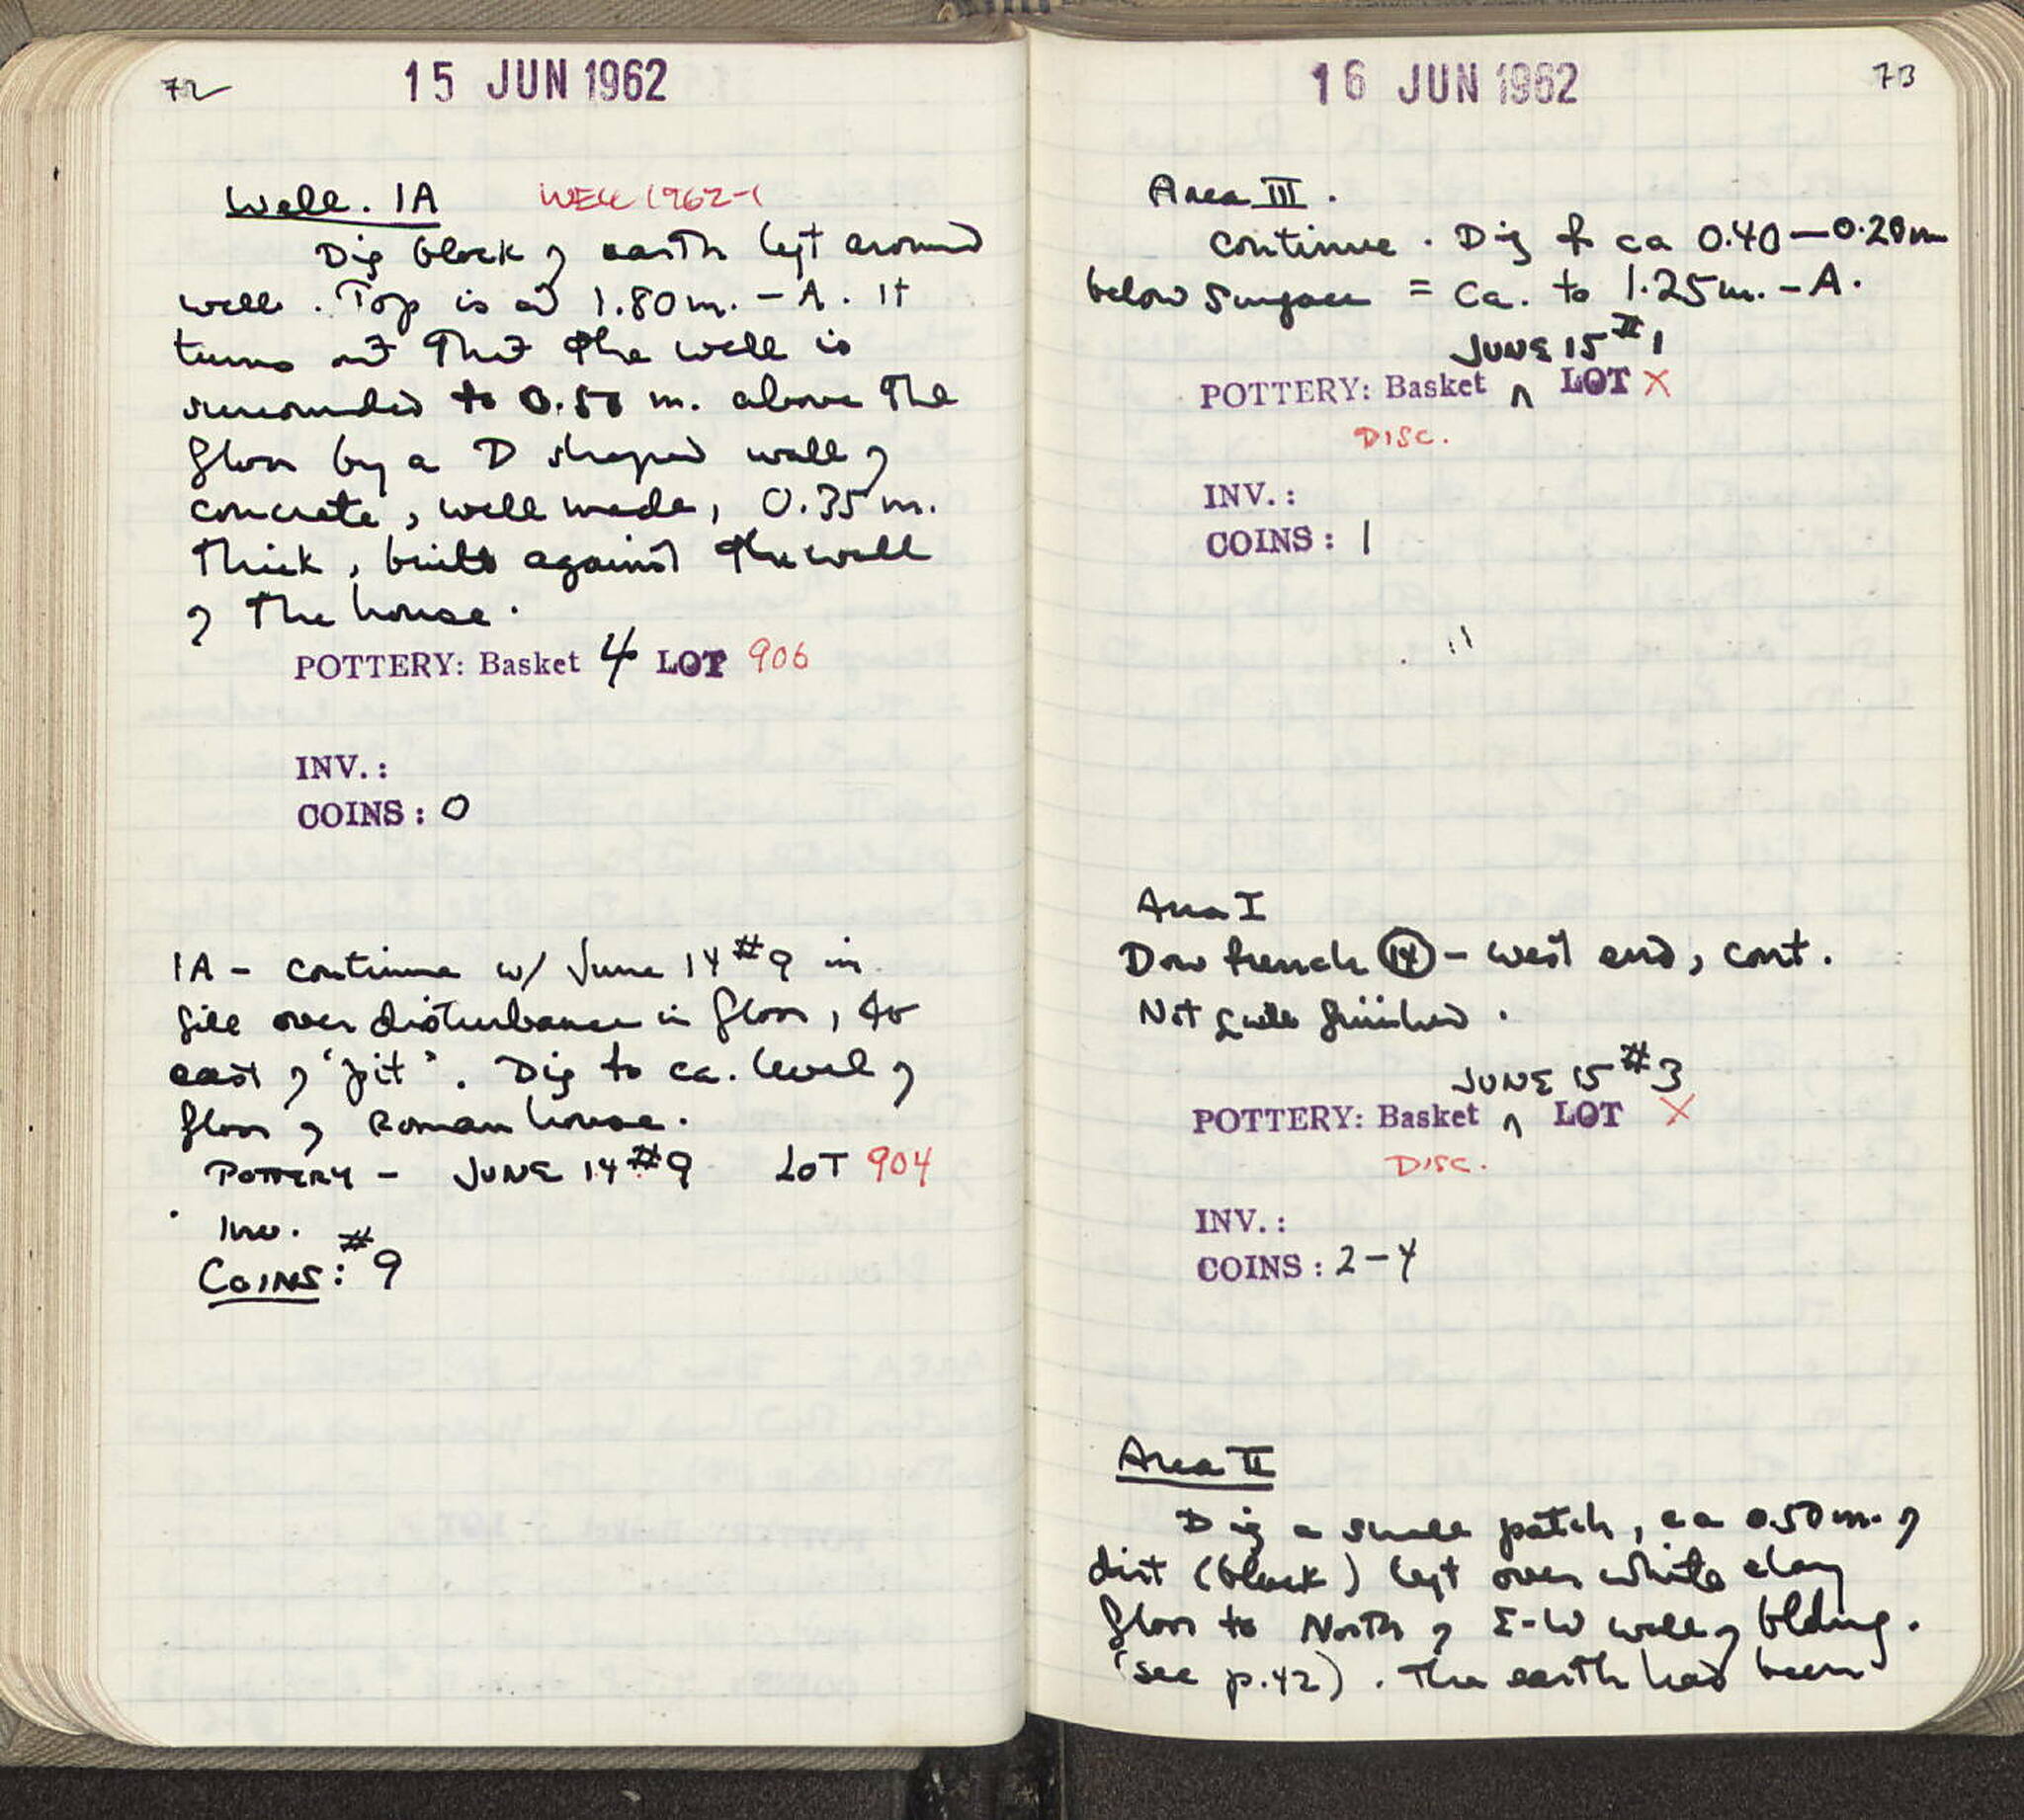 72
15 JUN 1962
Well. IA WELL 1962-1
Dig block of earth left around
well. Top is at 1.80 m. - A. It
turns out that the well is
surrounded to 0.50 m. above the
floor by a D shaped wall of
concrete, well made, 0.35 m.
thick, built against the wall
of the house.
POTTERY: Basket 4 LOT 906
INV.:
COINS: 0
IA - continue w/ June 14 #9 in
fill over disturbance in floor, to
east of "pit". Dig to ca. level of
floor of Roman house.
POTTERY - JUNE 14 #9 LOT 904
Inv.
COINS: #9
16 JUN 1962
73
Area III.
continue. Dig fr ca 0.40-0.20m
below surface = Ca. to 1.25m. - A.
JUNE 15 #1
POTTERY: Basket ^ LOT X
DISC.
INV.:
COINS: 1
Area I
Dow trench (14) - west end, cont.
Not quite finished.
JUNE 15 #3
POTTERY: Basket ^ LOT X
DISC.
INV.:
COINS: 2-4
Area II
Dig a small patch, ca 0.50 m. of
dirt (black) left over white clay
floor to North of E-W wall of blding.
(see p.42). The earth had been